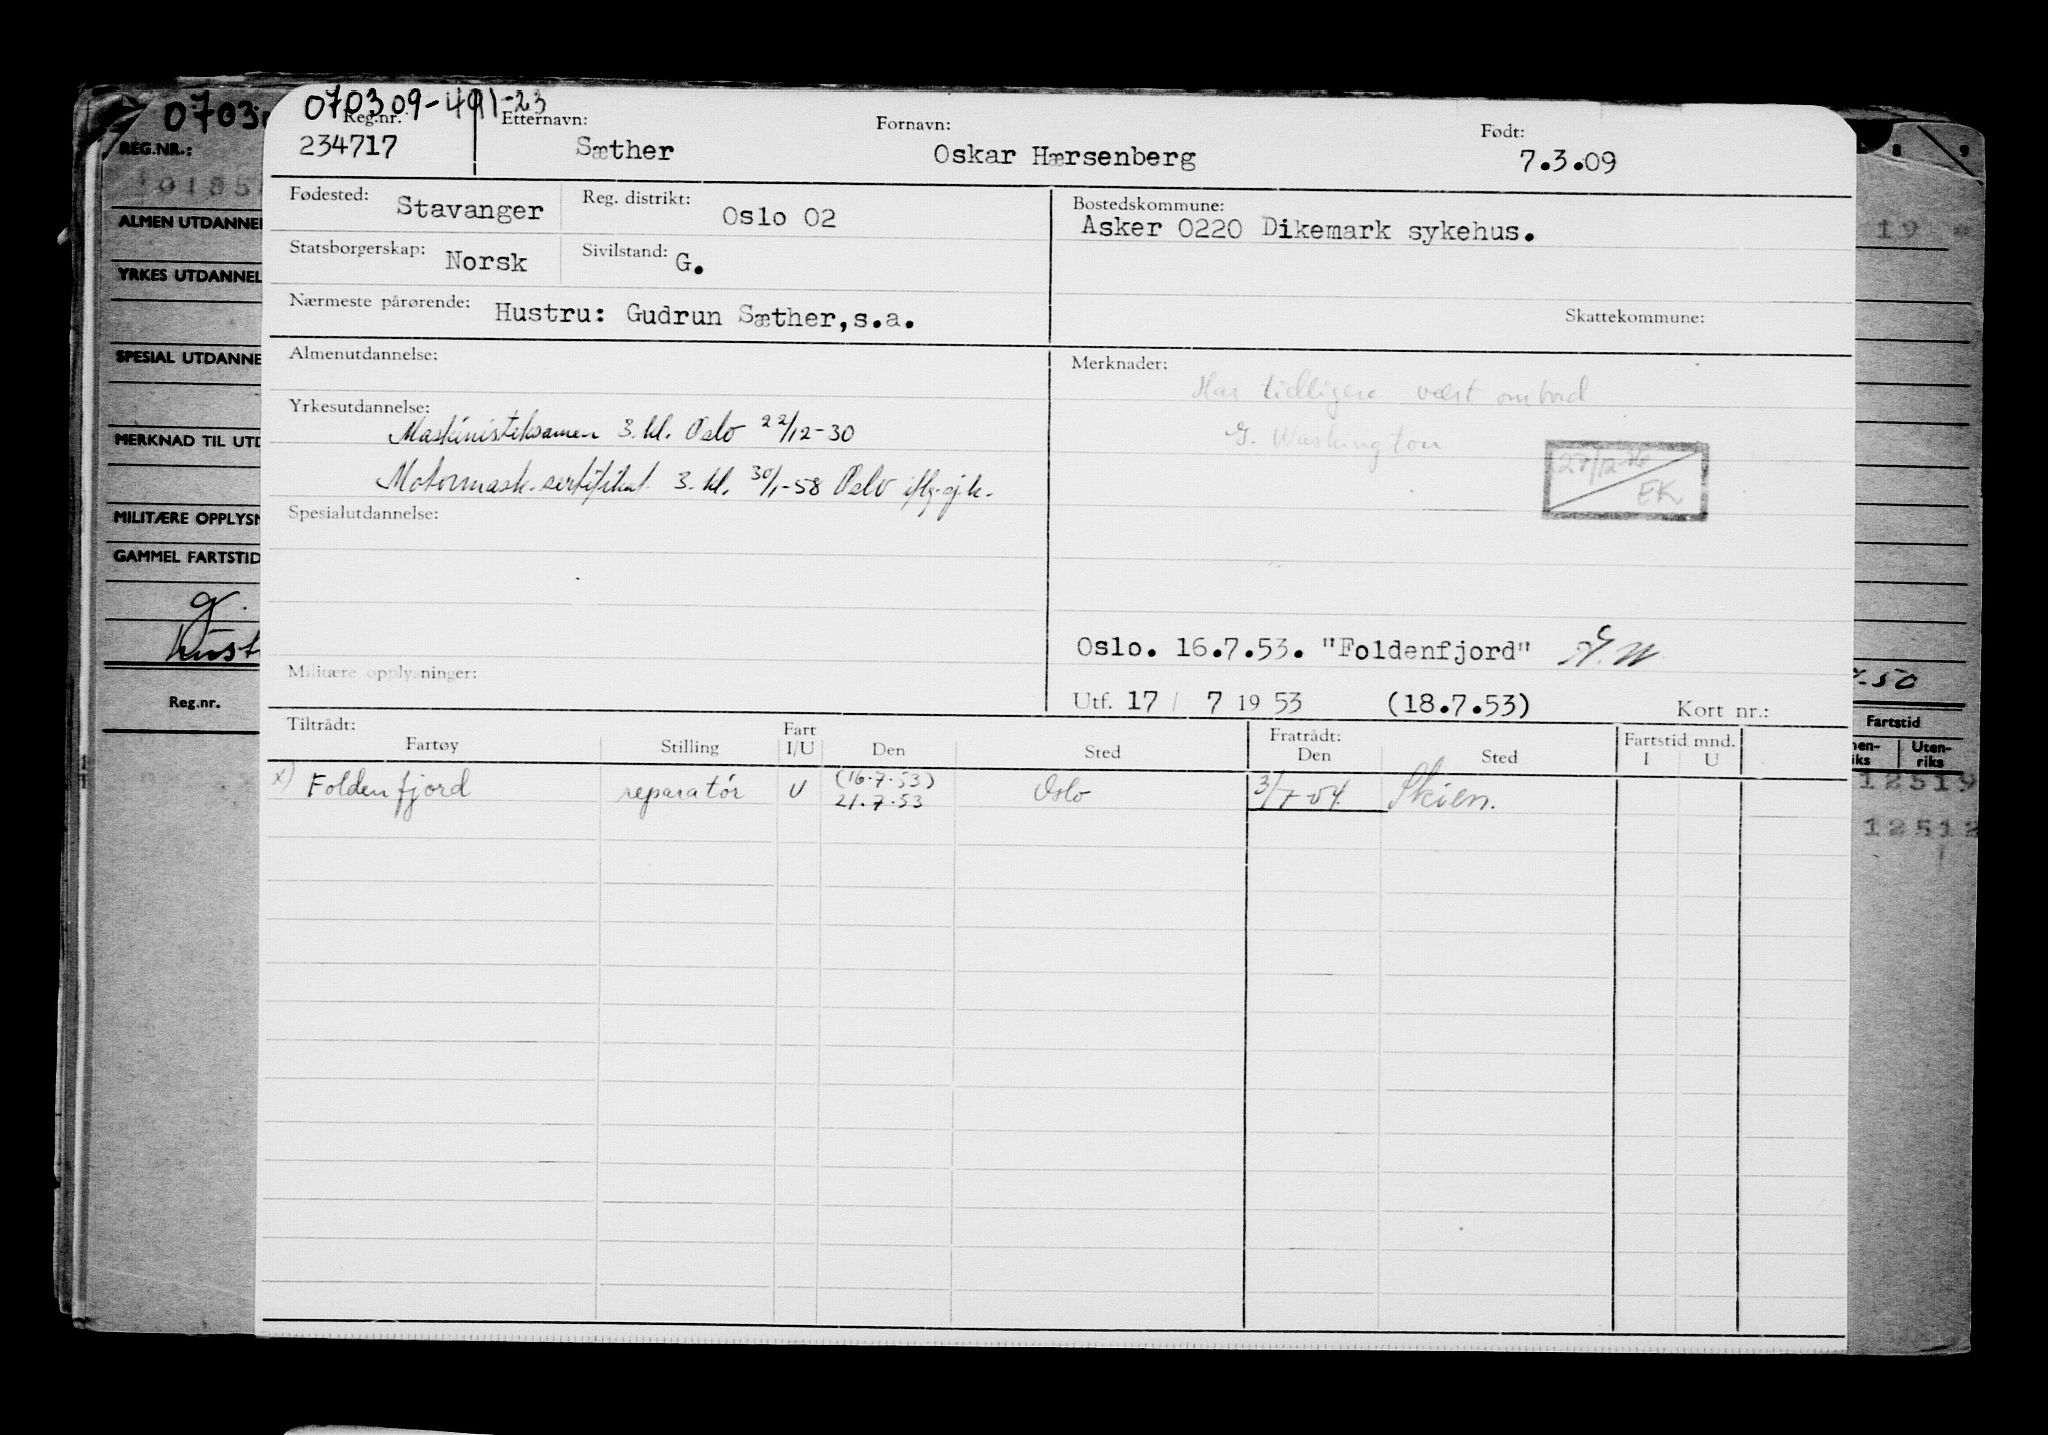 070309-491-23
Reg.nr. Etternavn: Fornavn: Født:
234717 Sæther Oskar Hærsenberg 7.3.09
Fødested: Stavanger Reg. distrikt: Oslo 02 Bostedskommune:
Asker 0220 Dikemark sykehus.
Statsborgerskap: Norsk Sivilstand: G.
Nærmeste pårørende: Hustru: Gudrun Sæther, s.a. Skattekommune:
Almenutdannelse: Merknader:
Har tidligere vært ombord
G. Washington
Yrkesutdannelse:
Maskinisteksamen 3. kl. Oslo 22/12-30
Motormask. sertifikat 3. kl. 30/1-58 Oslo iflg. gj.k.
27/12-76
EK
Spesialutdannelse:
Oslo. 16.7.53. "Foldenfjord"
Militære opplysninger:
Utf. 17 / 7 19 53 (18.7.53) Kort nr.:
Tiltrådt: Fartøy Stilling Fart I/U Den Sted Fratrådt: Den Sted Fartstid mnd. I U
x) Foldenfjord reparatør U (16.7.53) 21.7.53 Oslo 3/7-54 Skien.
0703
REG.NR.:
ALMEN UTDANNEL
YRKES UTDANNEL
SPESIAL UTDANNE
MERKNAD TIL UTD
MILITÆRE OPPLYSN
GAMMEL FARTSTID
Reg.nr.
8 9
19
-50
Fartstid
nen-
iks
Uten-
riks
12519
12512